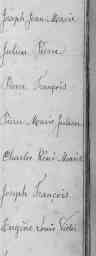 Joseph Jean Marie
Julien Pierre
Pierre François
Pierre Marie Julien
Charles René Marie
Joseph François
Eugène Louis Victor